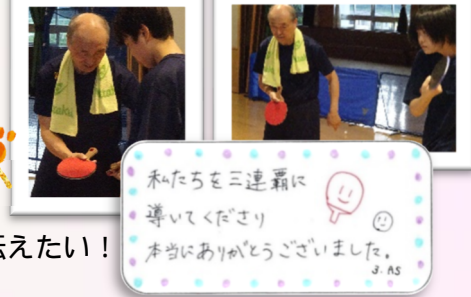 伝えたい！
私たちを三連覇に
導いてくださり
本当にありがとうございました。
3.AS